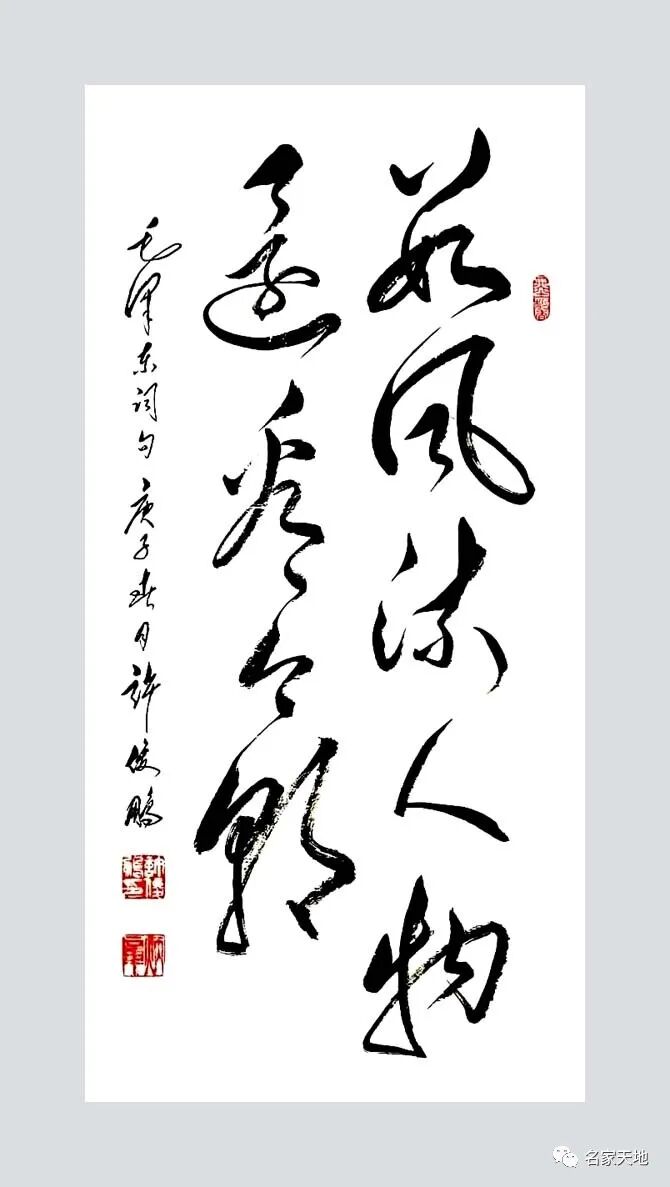 数风流人物
还看今朝
毛泽东词句 庚子春月 许俊鹏
名家天地